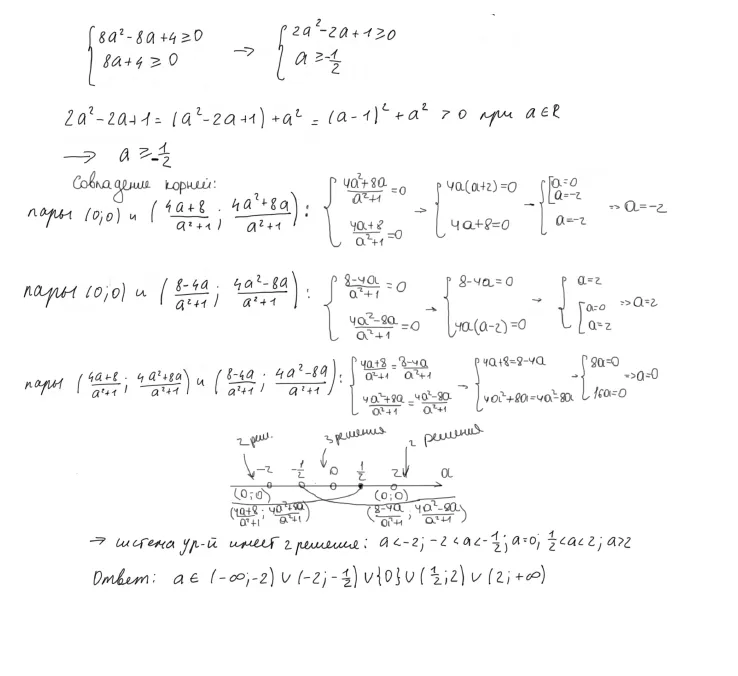 {8a²-8a+4≥0 → {2a²-2a+1≥0
{8a+4≥0 {a≥-1/2
2a²-2a+1=(a²-2a+1)+a²=(a-1)²+a²>0 при a∈R
→ a≥-1/2
Совпадение корней:
пары (0;0) и ((4a+8)/(a²+1); (4a²+8a)/(a²+1)): {(4a²+8a)/(a²+1)=0; (4a+8)/(a²+1)=0 → {4a(a+2)=0; 4a+8=0 → {[a=0 a=-2; a=-2 ⇒ a=-2
пары (0;0) и ((8-4a)/(a²+1); (4a²-8a)/(a²+1)): {(8-4a)/(a²+1)=0; (4a²-8a)/(a²+1)=0 → {8-4a=0; 4a(a-2)=0 → {a=2; [a=0 a=2 ⇒ a=2
пары ((4a+8)/(a²+1); (4a²+8a)/(a²+1)) и ((8-4a)/(a²+1); (4a²-8a)/(a²+1)): {(4a+8)/(a²+1)=(8-4a)/(a²+1); (4a²+8a)/(a²+1)=(4a²-8a)/(a²+1) → {4a+8=8-4a; 4a²+8a=4a²-8a → {8a=0; 16a=0 ⇒ a=0
2 реш. 3 решения 2 решения
-2 -1/2 0 1/2 2 a
(0;0) (0;0)
((4a+8)/(a²+1); (4a²+8a)/(a²+1)) ((8-4a)/(a²+1); (4a²-8a)/(a²+1))
→ система ур-й имеет 2 решения: a<-2; -2<a<-1/2; a=0; 1/2<a<2; a>2
Ответ: a∈(-∞;-2)∪(-2;-1/2)∪{0}∪(1/2;2)∪(2;+∞)